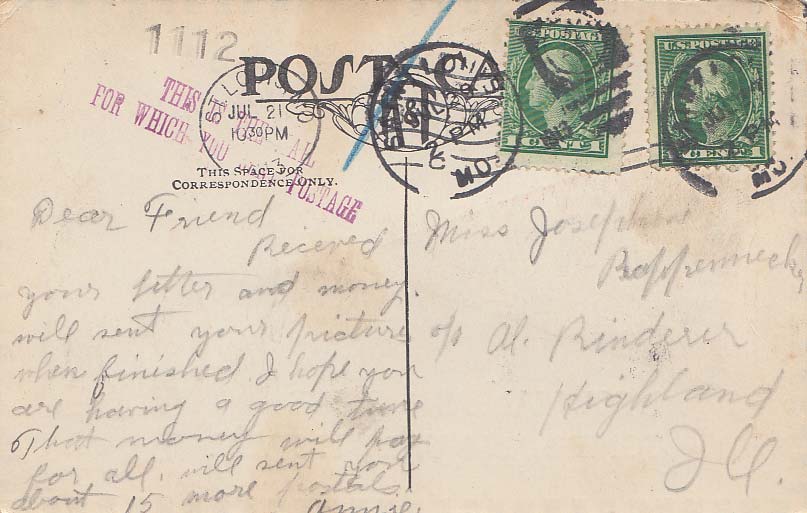 1112
POST CA
THIS IS THE MAIL
FOR WHICH YOU SENT POSTAGE
ST. LOUIS
JUL 21
10 30 PM
13
MO.
U.S. POSTAGE
1 CENT 1
U.S. POSTAGE
CENT 1
MO.
THIS SPACE FOR
CORRESPONDENCE ONLY.
Dear Friend
Recieved
your letter and money.
will sent your picture
when finished I hope you
are having a good time
That money will pay
for all. will sent you
about 15 more postals.
Annie.
Miss Josephine
Rappenneck
c/o Al. Rinderer
Highland
Ill.